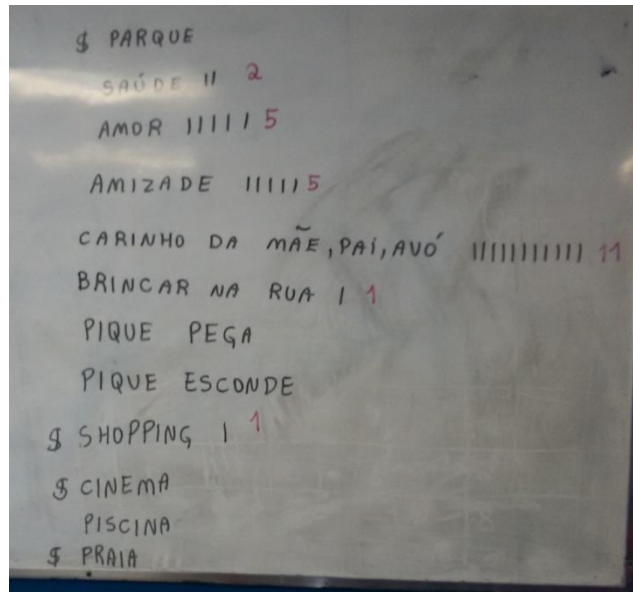 $ PARQUE
SAÚDE II 2
AMOR IIIII 5
AMIZADE IIIII 5
CARINHO DA MÃE, PAI, AVÓ IIIIIIIIIII 11
BRINCAR NA RUA I 1
PIQUE PEGA
PIQUE ESCONDE
$ SHOPPING I 1
$ CINEMA
PISCINA
$ PRAIA